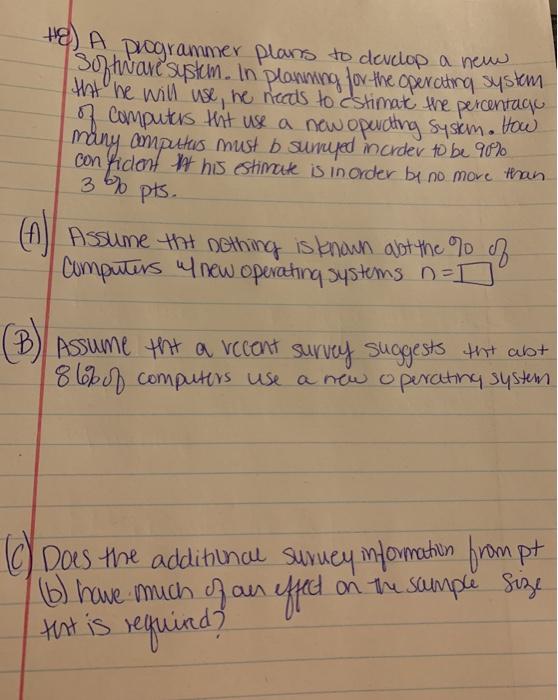 #8) A programmer plans to develop a new
software system. In planning for the operating system
tht he will use, he needs to estimate the percentage
of computers tht use a new operating system. How
many computers must b surveyed inorder to be 90%
confident tht his estimate is in order by no more than
3 % pts.
(A) Assume tht nothing is known abt the % of
Computers w/ new operating systems n=
(B) Assume tht a recent survey suggests tht abt
86% of computers use a new operating system
(C) Does the additional survey information from pt
(b) have much of an effect on the sample size
tht is required?